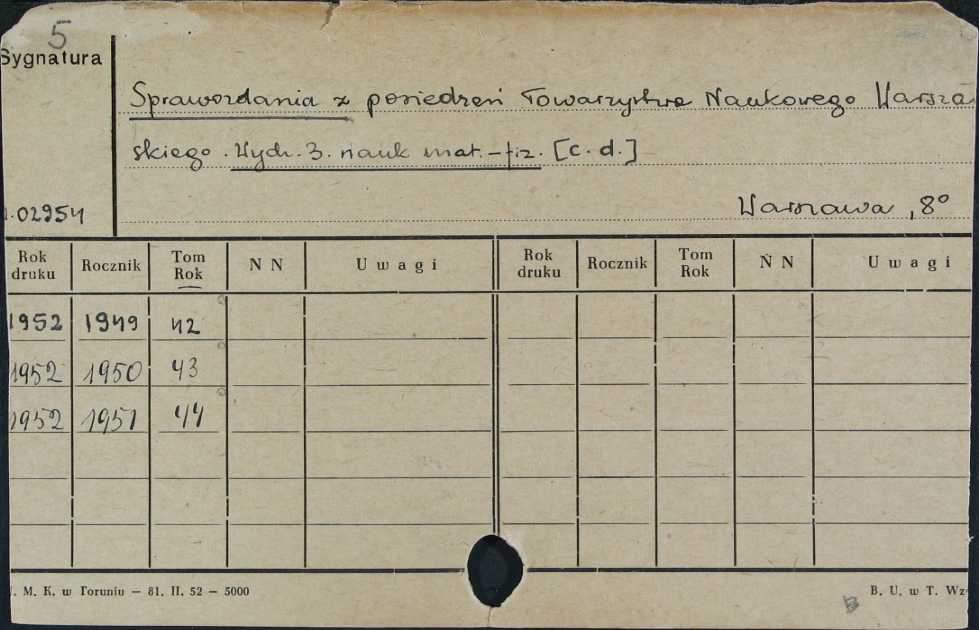 5
Sygnatura
Sprawozdania z posiedzeń Towarzystwa Naukowego Warsza
skiego. Wydz. 3. nauk mat.-fiz. [c. d.]
02954
Warszawa, 8°
Rok druku Rocznik Tom Rok N N Uwagi Rok druku Rocznik Tom Rok N N Uwagi
1952 1949 42
1952 1950 43
1952 1951 44
. M. K. w Toruniu — 81. II. 52 — 5000 B. U. w T. Wz